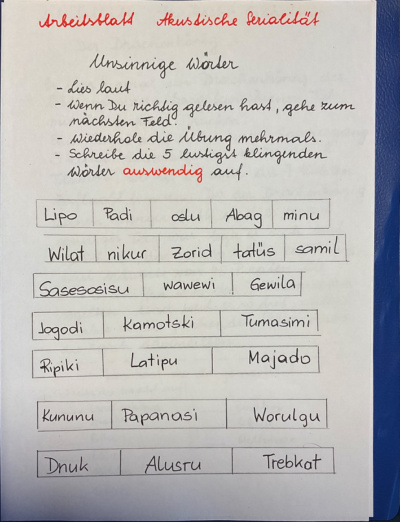 Arbeitsblatt Akustische Serialität
Unsinnige Wörter
- Lies laut
- Wenn Du richtig gelesen hast, gehe zum
nächsten Feld.
- Wiederhole die Übung mehrmals.
- Schreibe die 5 lustigst klingenden
Wörter auswendig auf.
Lipo Padi oslu Abag minu
Wilat nikur Zorid tatüs samil
Sasesosisu wawewi Gewila
Jogodi Kamotski Tumasimi
Ripiki Latipu Majado
Kununu Papanasi Worulgu
Dnuk Alusru Trebkat